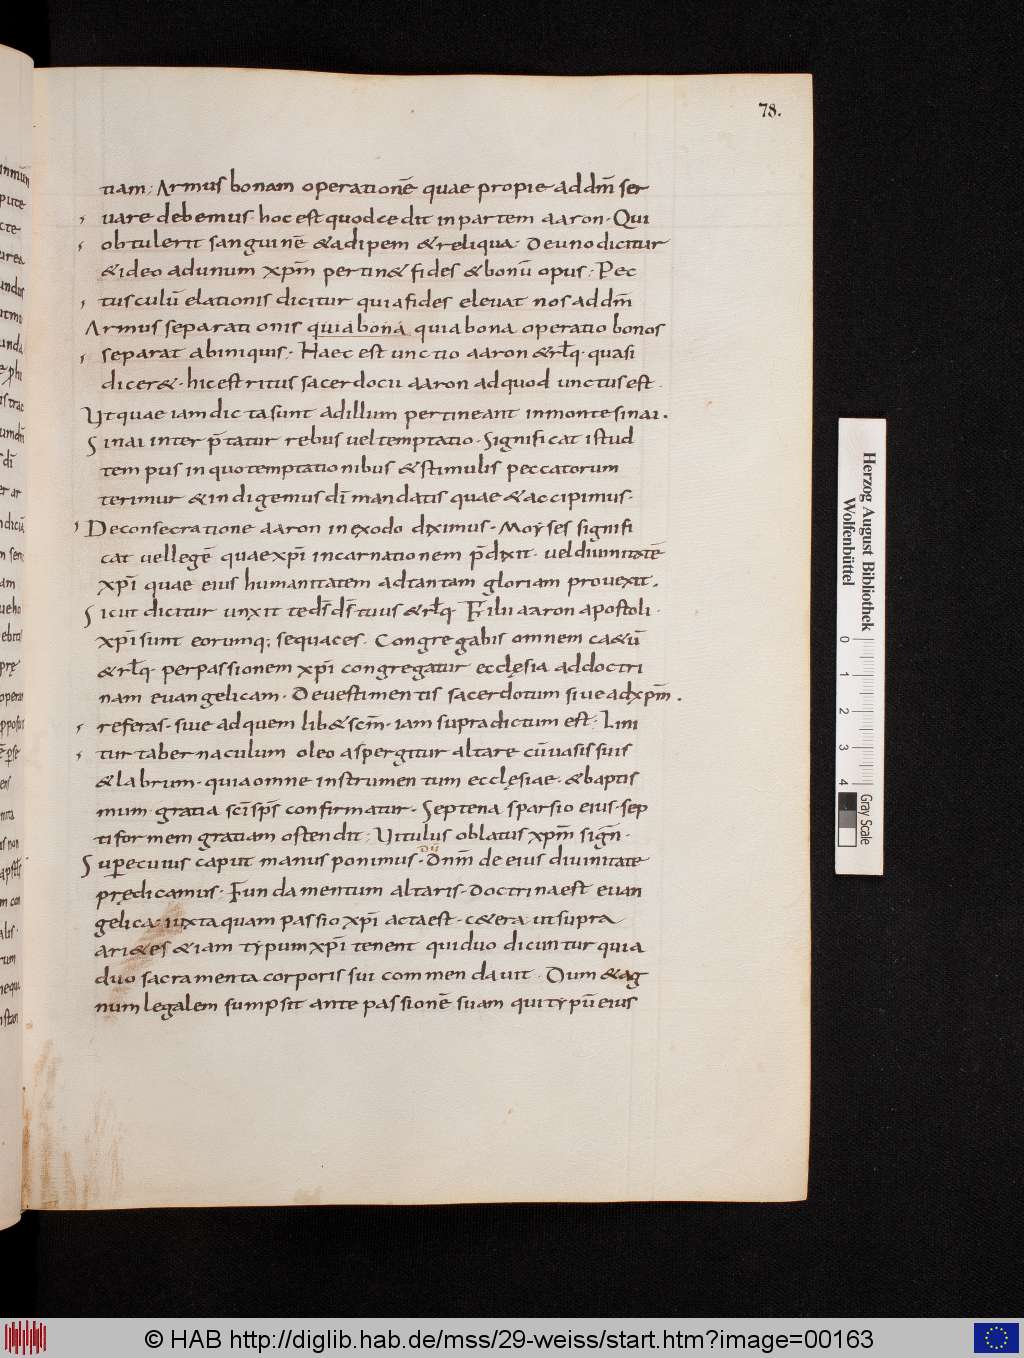 78.
tiam; Armus bonam operationē quae propie addm̄ ser
uare debemus· hoc est quod cedit in partem aaron· Qui
obtulerit sanguinē & adipem & reliqua· De uno dicitur
& ideo ad unum xpm̄ pertin& fides & bonū opus; Pec
tusculū elationis dicitur quia fides eleuat nos ad dm̄
Armus separationis quia bona quia bona operatio bonos
separat ab iniquis· Haec est unctio aaron & rƚq· quasi
dicer&· hic est ritus sacerdocii aaron ad quod unctus est·
Ut quae iam dicta sunt ad illum pertineant in monte sinai·
Sinai interp̄tatur rebus uel temptatio· Significat istud
tempus in quo temptationibus & stimulis peccatorum
terimur & indigemus dī mandatis quae & accipimus·
De consecratione aaron in exodo diximus· Moyses signifi
cat uel legē quae xpī incarnationem p̄dixit· uel diuinitatē
xpī quae eius humanitatem ad tantam gloriam prouexit·
Sicut dicitur unxit te ds̄ ds̄ tuus & rƚq· Filii aaron apostoli·
xpī sunt eorumq; sequaces· Congregabis omnem ca&ū
& rƚq· per passionem xpī congregatur ecclęsia ad doctri
nam euangelicam· De uestimentis sacerdotum siue ad xpm̄·
referas· siue ad quemlib& scm̄· iam supra dictum est; Lini
tur tabernaculum oleo aspergitur altare cū uasis suis
& labrum· quia omne instrumentum ecclęsiae· & baptis
mum gratia sc̄i sp̄s confirmatur· Septena sparsio eius· sep
tiformem gratiam ostendit; Uitulus oblatus xpm̄ sign̄·
Super cuius caput manus ponimus· Dnm̄ de eius diuinitate
prędicamus; Fundamentum altaris· doctrina est euan
gelica iuxta quam passio xpī acta est· c&era ut supra
ari&es & iam typum xpī tenent qui duo dicuntur quia
duo sacramenta corporis sui commendauit· Dum & ag
num legalem sumpsit ante passionē suam qui typū eius
Herzog August Bibliothek
Wolfenbüttel
0 1 2 3 4
Gray Scale
© HAB http://diglib.hab.de/mss/29-weiss/start.htm?image=00163